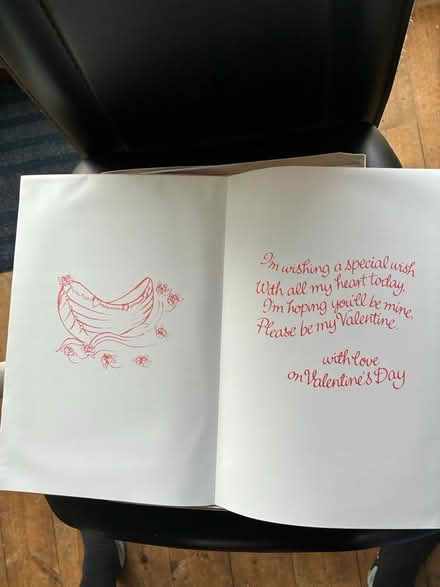 I'm wishing a special wish
With all my heart today,
I'm hoping you'll be mine,
Please be my Valentine.
with love
on Valentine's Day